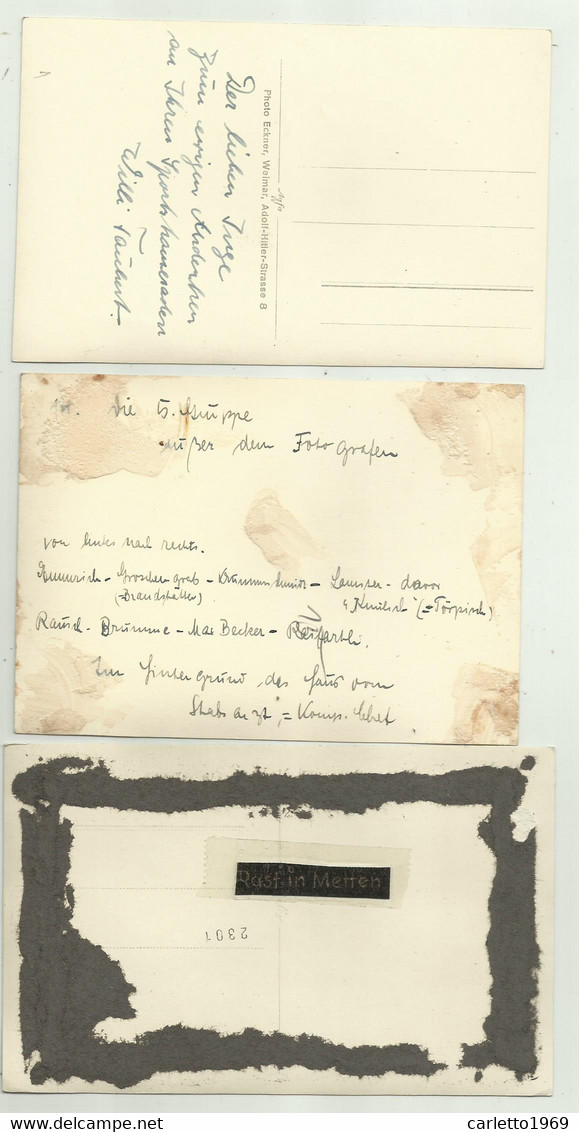 Der lieben Inge
zum ewigen Andenken
an Ihren Sportkameraden
Willi Taubert.
Photo Eckner, Weimar, Adolf-Hitler-Strasse 8
Die 5. Gruppe
außer dem Fotografen
von links nach rechts.
Emmerich - Groschengrab - - davor
"Knutsch" (= Törpisch)
Rausch - Brumme - Max Becker - Reifarth.
Im Hintergrund das Haus vom
Stabsarzt, = Komp. Chef
Rast in Metten
2301
carletto1969